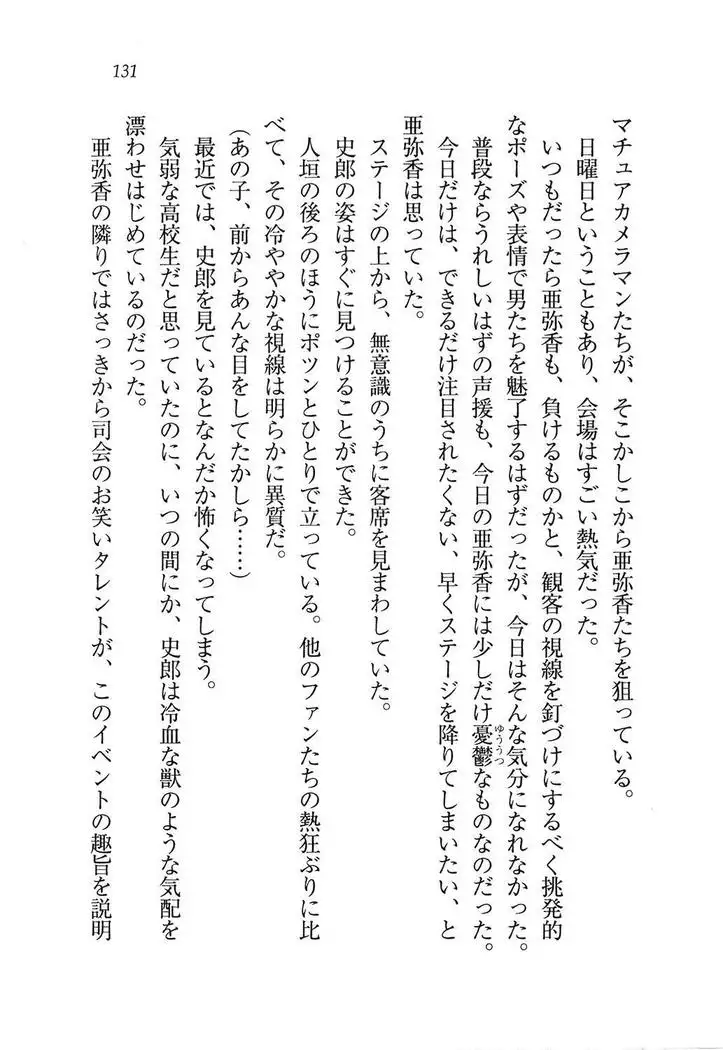 131
マチュアカメラマンたちが、そこかしこから亜弥香たちを狙っている。
日曜日ということもあり、会場はすごい熱気だった。
いつもだったら亜弥香も、負けるものかと、観客の視線を釘づけにするべく挑発的
なポーズや表情で男たちを魅了するはずだったが、今日はそんな気分になれなかった。
普段ならうれしいはずの声援も、今日の亜弥香には少しだけ憂鬱なものなのだった。
ゆううつ
今日だけは、できるだけ注目されたくない、早くステージを降りてしまいたい、と
亜弥香は思っていた。
ステージの上から、無意識のうちに客席を見まわしていた。
史郎の姿はすぐに見つけることができた。
人垣の後ろのほうにポツンとひとりで立っている。他のファンたちの熱狂ぶりに比
べて、その冷ややかな視線は明らかに異質だ。
(あの子、前からあんな目をしてたかしら……)
最近では、史郎を見ているとなんだか怖くなってしまう。
気弱な高校生だと思っていたのに、いつの間にか、史郎は冷血な獣のような気配を
漂わせはじめているのだった。
亜弥香の隣りではさっきから司会のお笑いタレントが、このイベントの趣旨を説明